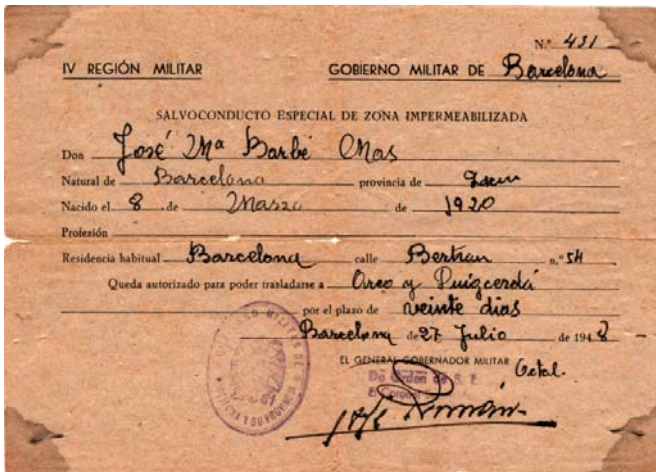 N.º 431
IV REGIÓN MILITAR GOBIERNO MILITAR DE Barcelona
SALVOCONDUCTO ESPECIAL DE ZONA IMPERMEABILIZADA
Don José Mª Barbé Mas
Natural de Barcelona provincia de
Nacido el 8 de Marzo de 1920
Profesión
Residencia habitual Barcelona calle Bertran n.º 54
Queda autorizado para poder trasladarse a y Puigcerdá
por el plazo de veinte dias
Barcelona de 27 Julio de 1948
EL GENERAL GOBERNADOR MILITAR
De Orden de S. E.
El Coronel